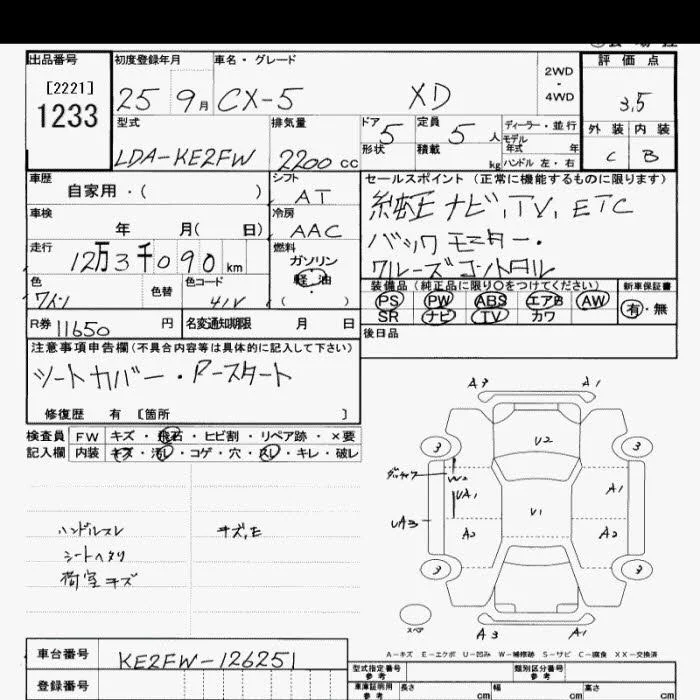 出品番号 初度登録年月 車名・グレード 評価点
[2221] 2WD
1233 25 9月 CX-5 XD ・ 3.5
4WD
型式 排気量 ドア 5 定員 5人 ディーラー・並行 外装 内装
モデル年式 年
LDA-KE2FW 2200cc 形状 積載 kg ハンドル 左・右 C B
車歴 シフト セールスポイント (正常に機能するものに限ります)
自家用・( ) AT 純正ナビ,TV,ETC
車検 冷房
年 月( 日) AAC バックモニター・
走行 燃料
12万3千090km ガソリン クルーズコントロル
軽油
色 色替 色コード ( ) 装備品(純正品に限り○をつけてください) 新車保証書
ワイン 41V PS PW ABS エアB AW 有・無
SR ナビ TV カワ
R券 11650円 名変通知期限 月 日 後日品
注意事項申告欄(不具合内容等は具体的に記入して下さい)
シートカバー・Pースタート
修復歴 有 [箇所 ]
検査員 FW キズ・飛石・ヒビ割・リペア跡・×要
記入欄 内装 キズ・汚レ・コゲ・穴・スレ・キレ・破レ
A3 A1
3 V2 3
W2
UA1 A1
UA3 V1
A2 A2
3 3
ハンドルスレ キズ,E
シートヘタリ
荷室キズ
スペア
A3 A1
A-キズ E-エクボ U-凹み W-補修跡 S-サビ C-腐食 XX-交換済
車台番号 KE2FW-126251 型式指定番号 参考 類別区分番号 参考
登録番号 車庫証明用 参考 長さ cm 幅 cm 高さ cm